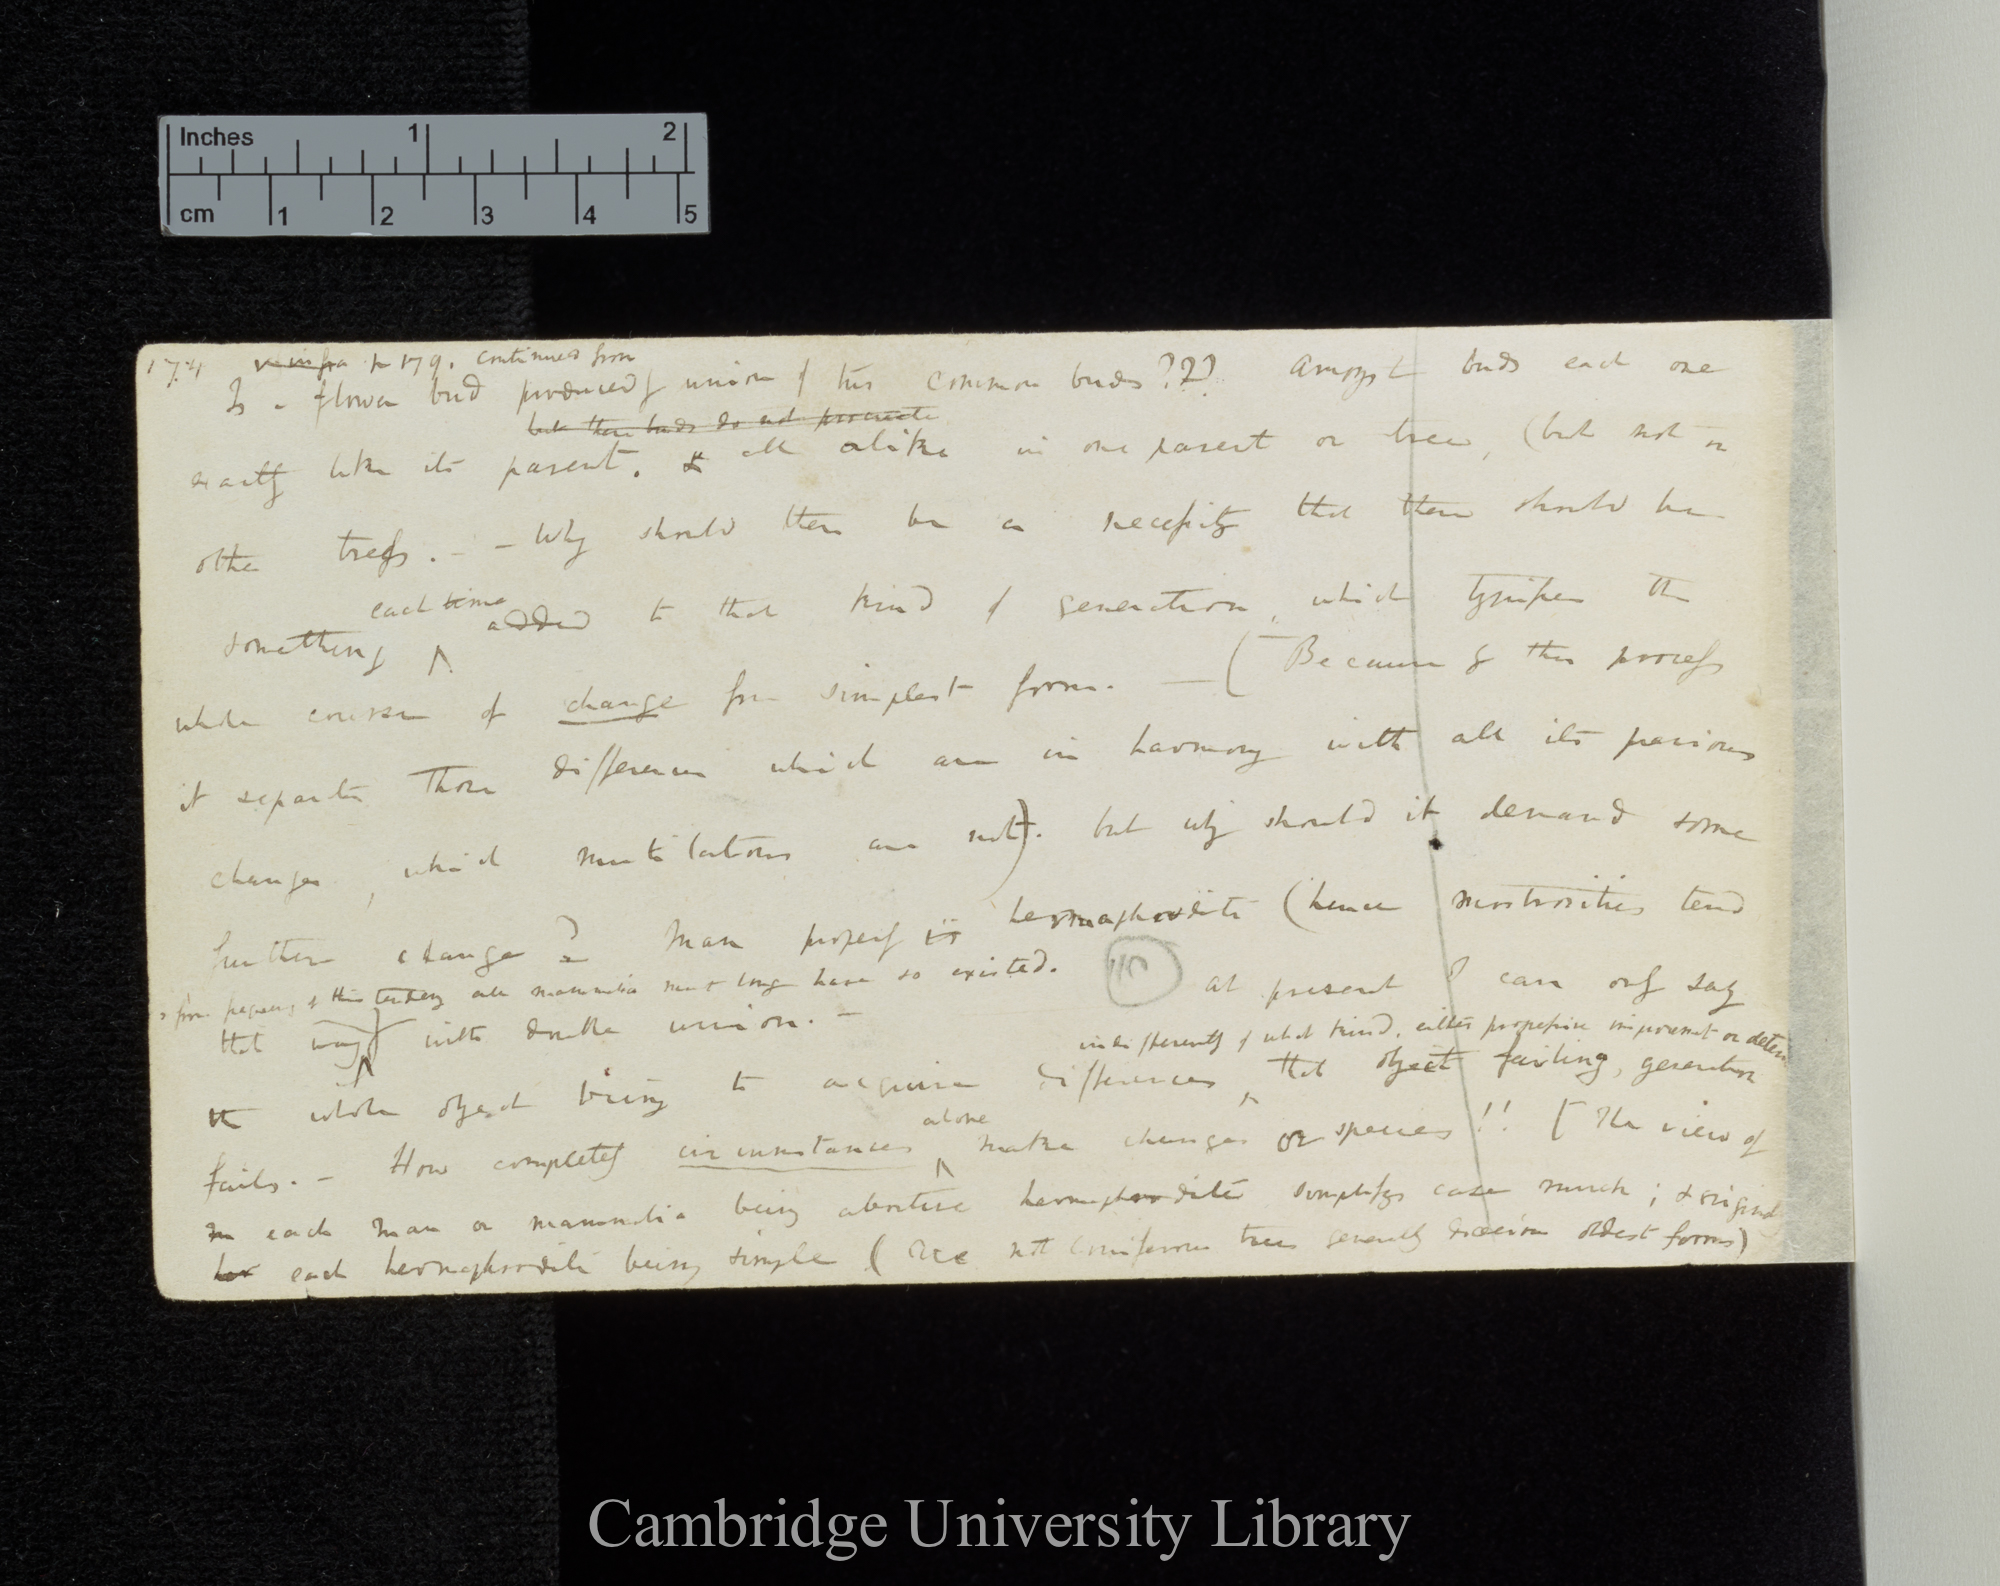 Inches 1 2
cm 1 2 3 4 5
174 v. infra p 179. continued from
Is a flower bud produced by union of two common buds??? Amongst buds each one
but these buds do not procreate
exactly like its parent. & all alike in one parent or tree, (but not in
other trees. — — Why should there be a necessity that there should be
each time
something added to that kind of generation, which typifies the
whole course of change from simplest form. — (Because by this process
it separates those differences which are in harmony with all its previous
changes, which mutilations are not). but why should it demand some
further change? Man properly is hermaphrodite (hence monstrosities tend
& from frequency of this tendency all mammalia must long have so existed.
that way with double union. — 40 At present I can only say
indifferently of what kind, either progressive improvement or deter
the whole object being to acquire differences, that object failing, generation
alone
fails. — How completely circumstances make changes or species!! [The view of
in each man or mammalia being abortive hermaphrodite simplifys case much; & originally
her each hermaphrodite being simple (are not Coniferous trees generally dioecious oldest forms)
Cambridge University Library